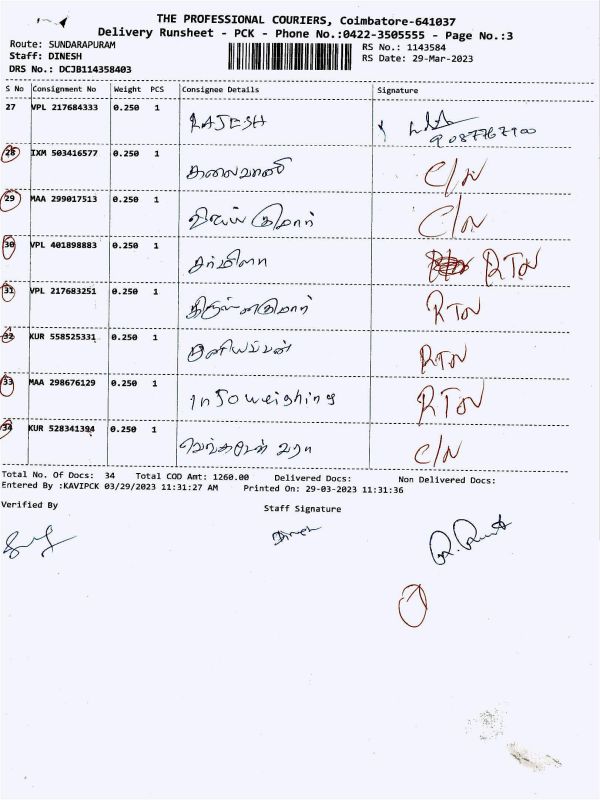 THE PROFESSIONAL COURIERS, Coimbatore-641037
Delivery Runsheet - PCK - Phone No.:0422-3505555 - Page No.:3
Route: SUNDARAPURAM RS No.: 1143584
Staff: DINESH RS Date: 29-Mar-2023
DRS No.: DCJB114358403
S No Consignment No Weight PCS Consignee Details Signature
27 VPL 217684333 0.250 1 RAJESH
9087767900
28 IXM 503416577 0.250 1 கலைவாணி C/N
29 MAA 299017513 0.250 1 விஜய் குமார் C/N
30 VPL 401898883 0.250 1 சர்மிளா RTN
31 VPL 217683251 0.250 1 RTN
32 KUR 558525331 0.250 1 RTN
33 MAA 298676129 0.250 1 Infoweighing RTN
34 KUR 528341394 0.250 1 C/N
Total No. Of Docs: 34 Total COD Amt: 1260.00 Delivered Docs: Non Delivered Docs:
Entered By :KAVIPCK 03/29/2023 11:31:27 AM Printed On: 29-03-2023 11:31:36
Verified By Staff Signature
Dinesh